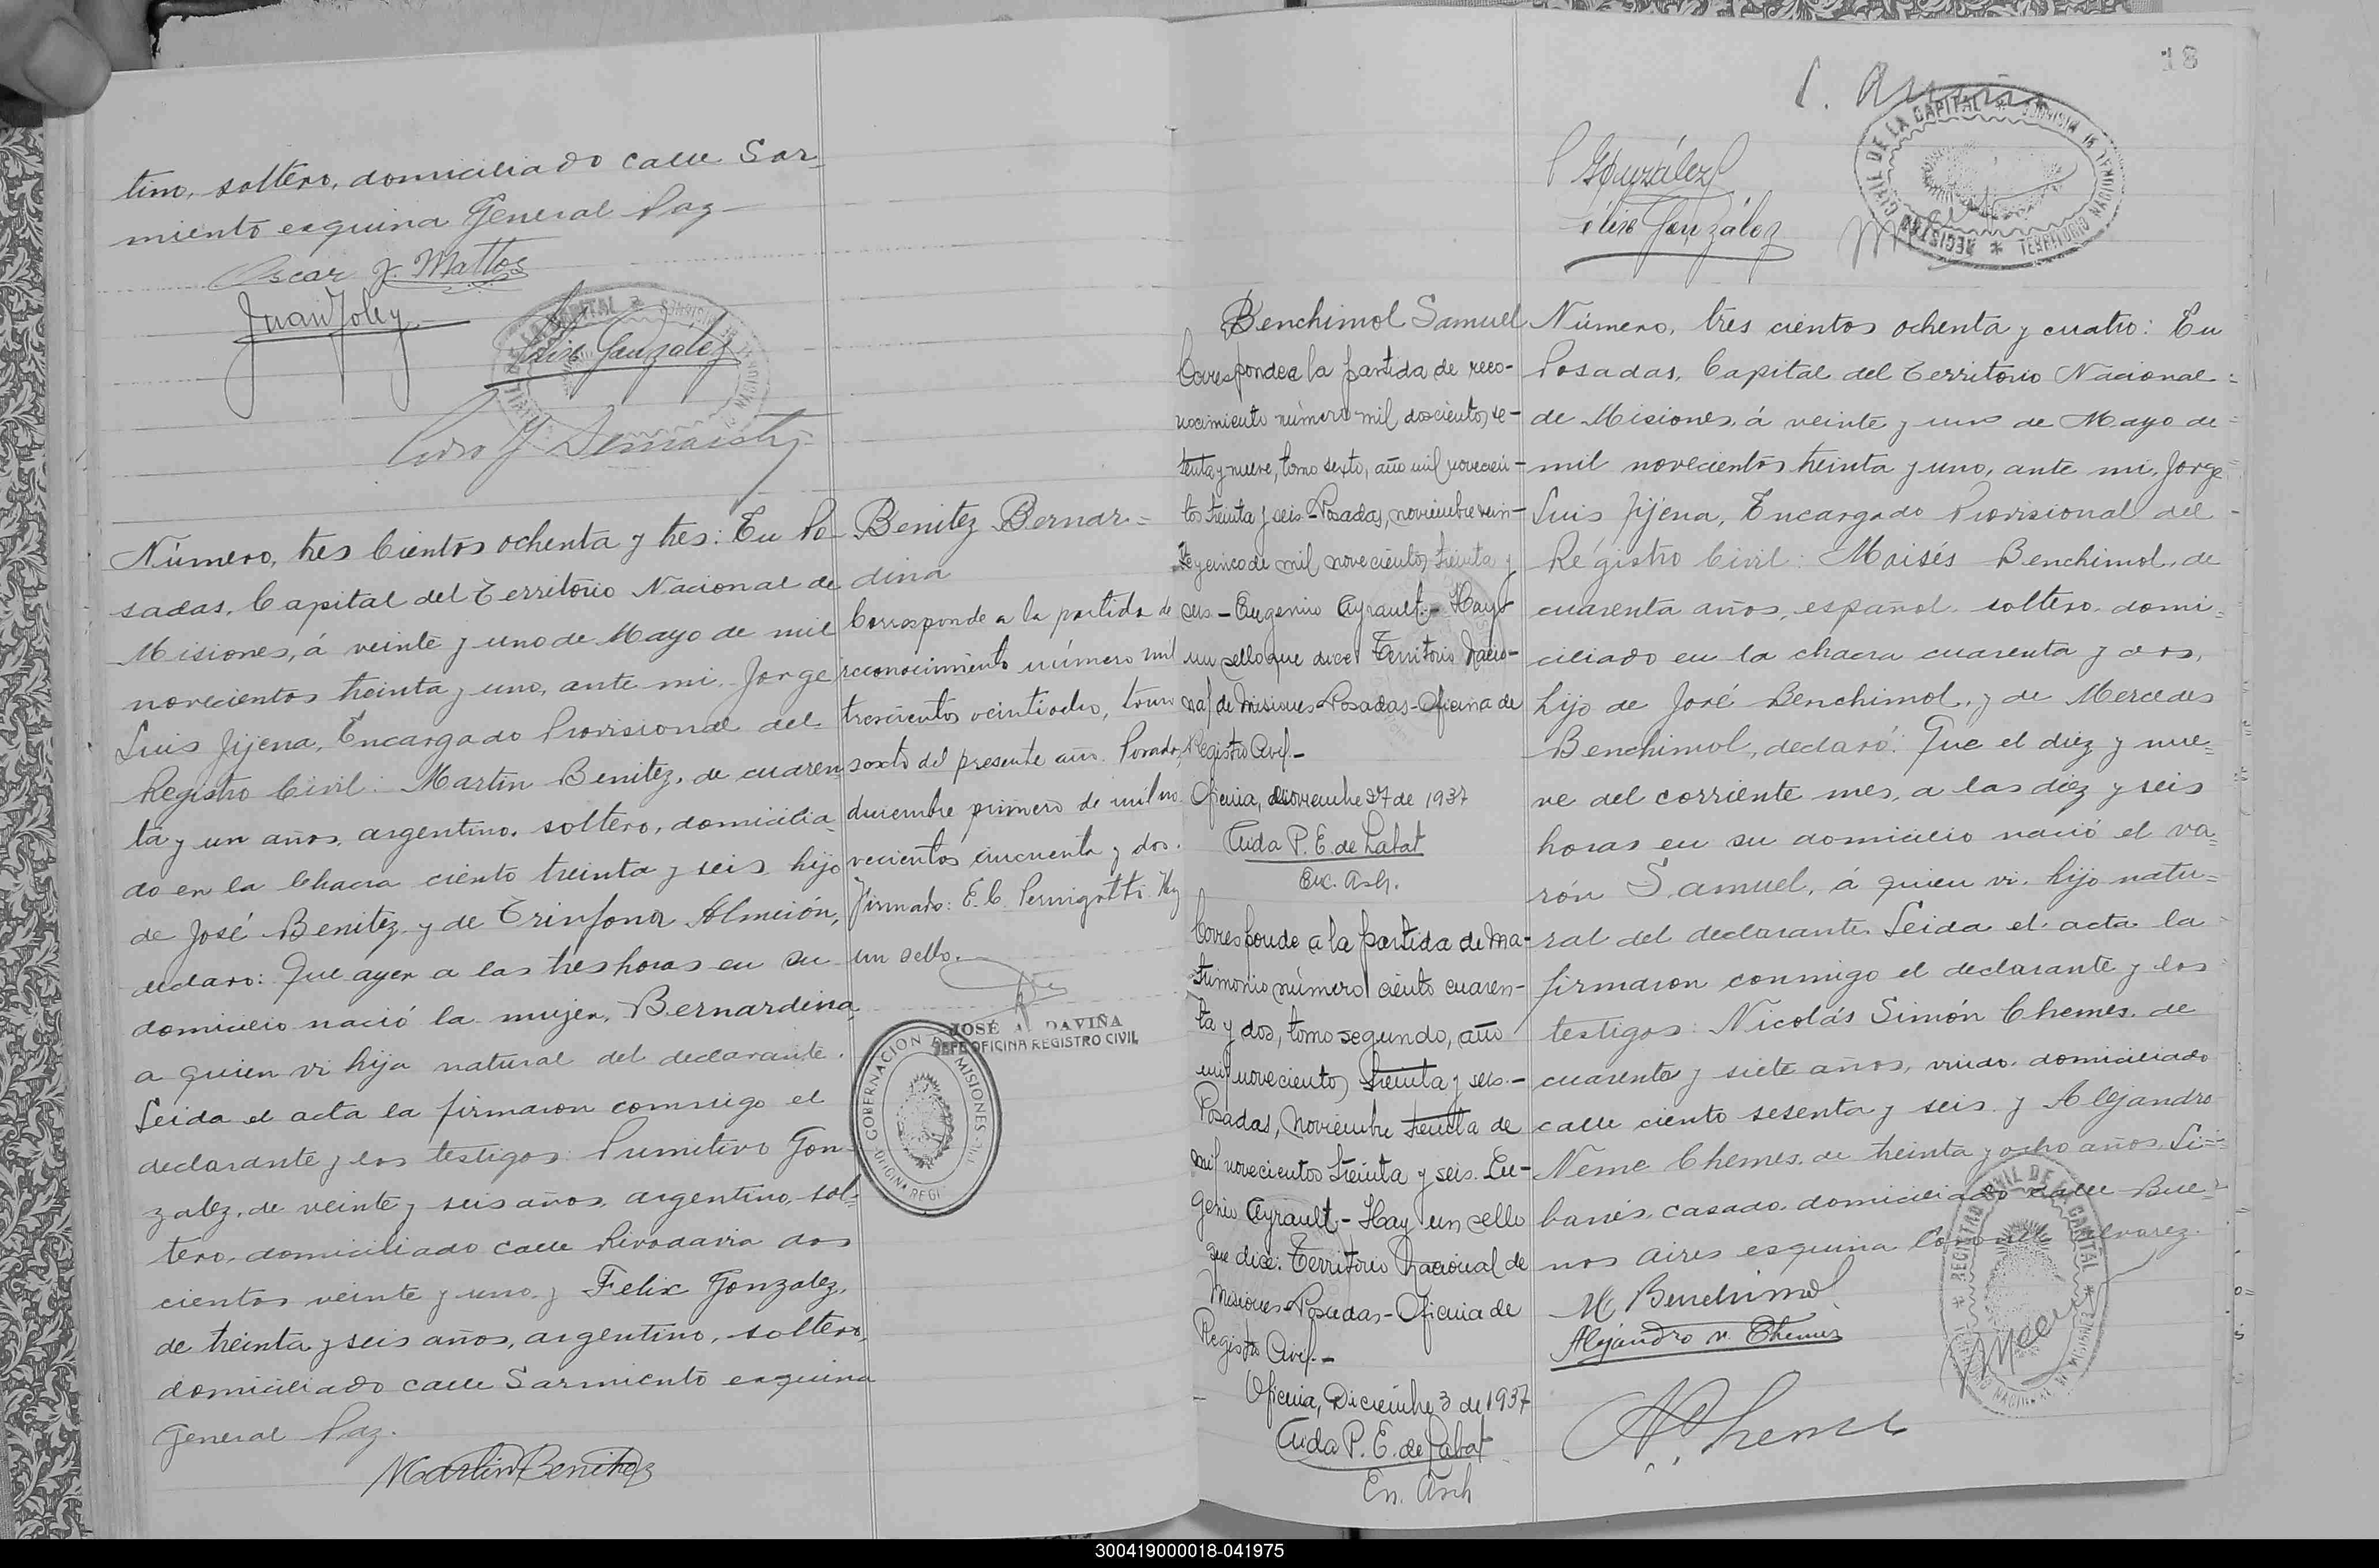 tino, soltero, domiciliado calle Sar-
miento esquina General Paz
Oscar J. Mattos
Juan Joley
Felix Gonzalez
Número, tres cientos ochenta y tres: En Po-
sadas, Capital del Territorio Nacional de
Misiones, á veinte y uno de Mayo de mil
novecientos treinta y uno, ante mi, Jorge
Luis Jijena, Encargado Provisional del
Registro Civil: Martin Benitez, de cuaren
ta y un años, argentino, soltero, domicilia-
do en la Chacra ciento treinta y seis, hijo
de José Benitez y de
declaro: Que ayer a las tres horas en su
domicilio nació la mujer, Bernardina,
a quien vi hija natural del declarante.
Leida el acta la firmaron conmigo el
declarante y los testigos: Primitivo Gon-
zalez, de veinte y seis años, argentino, sol-
tero, domiciliado calle Rivadavia dos
cientos veinte y uno y Felix Gonzalez,
de treinta y seis años, argentino, soltero,
domiciliado calle Sarmiento esquina
General Paz.
Martin Benitez
Benitez Bernar=
dina
Corresponde a la partida de
reconocimiento número mil
trescientos veintiocho, tomo
sexto del presente año. Posadas,
diciembre primero de mil no-
vecientos cincuenta y dos.
Firmado: E. C. Pernigotti. Hay
un sello.
JOSÉ A. DAVIÑA
JEFE OFICINA REGISTRO CIVIL
GOBERNACION DE MISIONES
OFICINA REGI
18
P González
Félix González
REGISTRO CIVIL DE LA CAPITAL * TERRITORIO NACIONAL DE MISIONES *
Benchimol Samuel
Corresponde a la partida de reco-
nocimiento número mil doscientos se-
tenta y nueve, tomo sexto, año mil novecien-
tos treinta y seis - Posadas, noviembre vein-
te y cinco de mil novecientos treinta y
seis - Eugenio Ayrault - Hay
un sello que dice: Territorio Nacio-
nal de Misiones - Posadas - Oficina de
Registro Civil. -
Oficina, noviembre 27 de 1937
Aida P. E. de Labat
Enc. Arch.
Corresponde a la partida de ma-
trimonio número ciento cuaren-
ta y dos, tomo segundo, año
mil novecientos treinta y seis. -
Posadas, noviembre treinta de
mil novecientos treinta y seis. Eu-
genio Ayrault - Hay un sello
que dice: Territorio Nacional de
Misiones - Posadas - Oficina de
Registro Civil. -
Oficina, Diciembre 3 de 1937
Aida P. E. de Labat
En. Arch
Número, tres cientos ochenta y cuatro: En
Posadas, Capital del Territorio Nacional
de Misiones, á veinte y uno de Mayo de
mil novecientos treinta y uno, ante mi, Jorge
Luis Jijena, Encargado Provisional del
Registro Civil: Moisés Benchimol, de
cuarenta años, español, soltero, domi=
ciliado en la chacra cuarenta y dos,
hijo de José Benchimol, y de Mercedes
Benchimol, declaró: Que el diez y nue=
ve del corriente mes, a las diez y seis
horas en su domicilio nació el va=
rón Samuel, á quien vi, hijo natu=
ral del declarante. Leida el acta la
firmaron conmigo el declarante y los
testigos: Nicolás Simón Chemes, de
cuarenta y siete años, viudo, domiciliado
calle ciento sesenta y seis y Alejandro
Neme Chemes, de treinta y ocho años, Li=
banés, casado, domiciliado calle Bue=
nos Aires esquina Alvarez.
M Benchimol
Alejandro N. Chemes
REGISTRO CIVIL DE LA CAPITAL
300419000018-041975